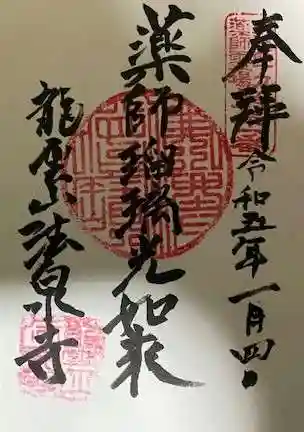 奉拝
令和五年一月四日
薬師瑠璃光如来
龍雲山法泉寺